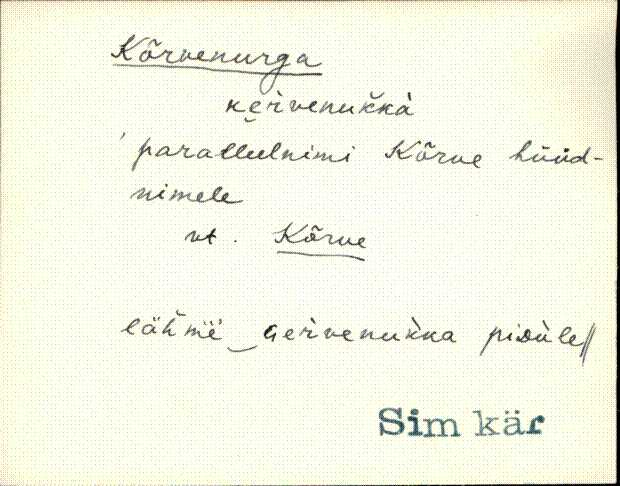 Kõrvenurga
kèrvenukka
parallelnimi Kõrve hüüd-
nimele
vt. Kõrve
lähmè gèrvenukka piDùle//
Sim kär